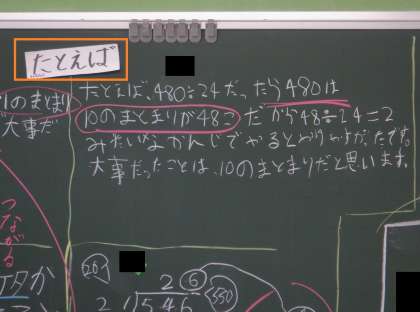 たとえば
たとえば、480÷24だったら480は
10のまとまりが48こ だから48÷24=2
みたいなかんじでやるとわかりやすかったです。
大事だったことは、10のまとまりだと思います。
1のまとまり
大事だ
つながる
26
2 6
546
550